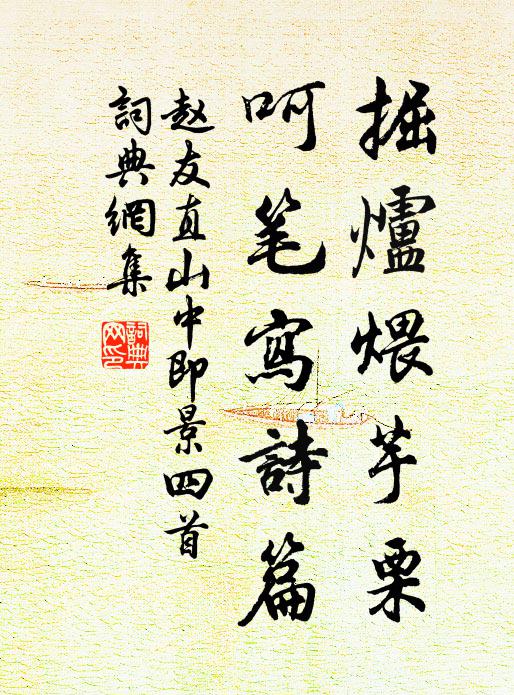 掘爐煨芋栗
呵笔寫詩篇
赵友直山中即景四首
詞典網集
詞典網印